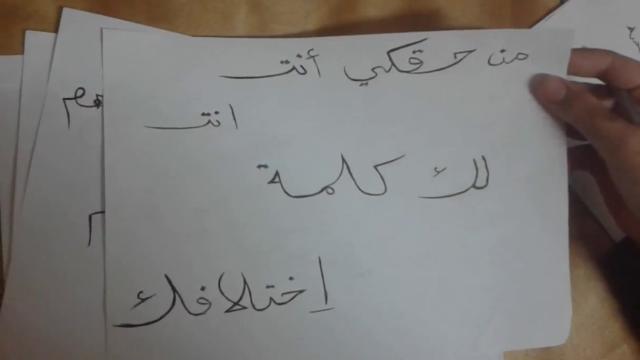 من حقكي أنت
انت
لك كلمة
إختلافك